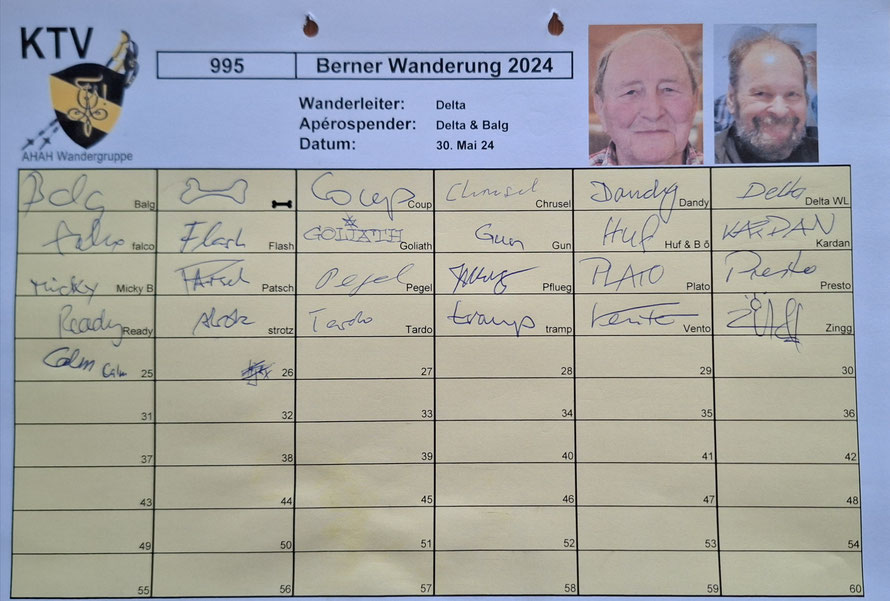 KTV
AHAH Wandergruppe
995 Berner Wanderung 2024
Wanderleiter: Delta
Apérospender: Delta & Balg
Datum: 30. Mai 24
Balg Balg Coup Coup Chrusel Chrusel Dandy Dandy Delta Delta WL
falco falco Flash Flash GOLIATH Goliath Gun Gun Huf Huf & B ö KARDAN Kardan
Micky Micky B Patsch Patsch Pegel Pegel Pflueg Pflueg PLATO Plato Presto Presto
Ready Ready strotz strotz Tardo Tardo tramp tramp Vento Vento Zingg
Calm Calm 25 26 27 28 29 30
31 32 33 34 35 36
37 38 39 40 41 42
43 44 45 46 47 48
49 50 51 52 53 54
55 56 57 58 59 60